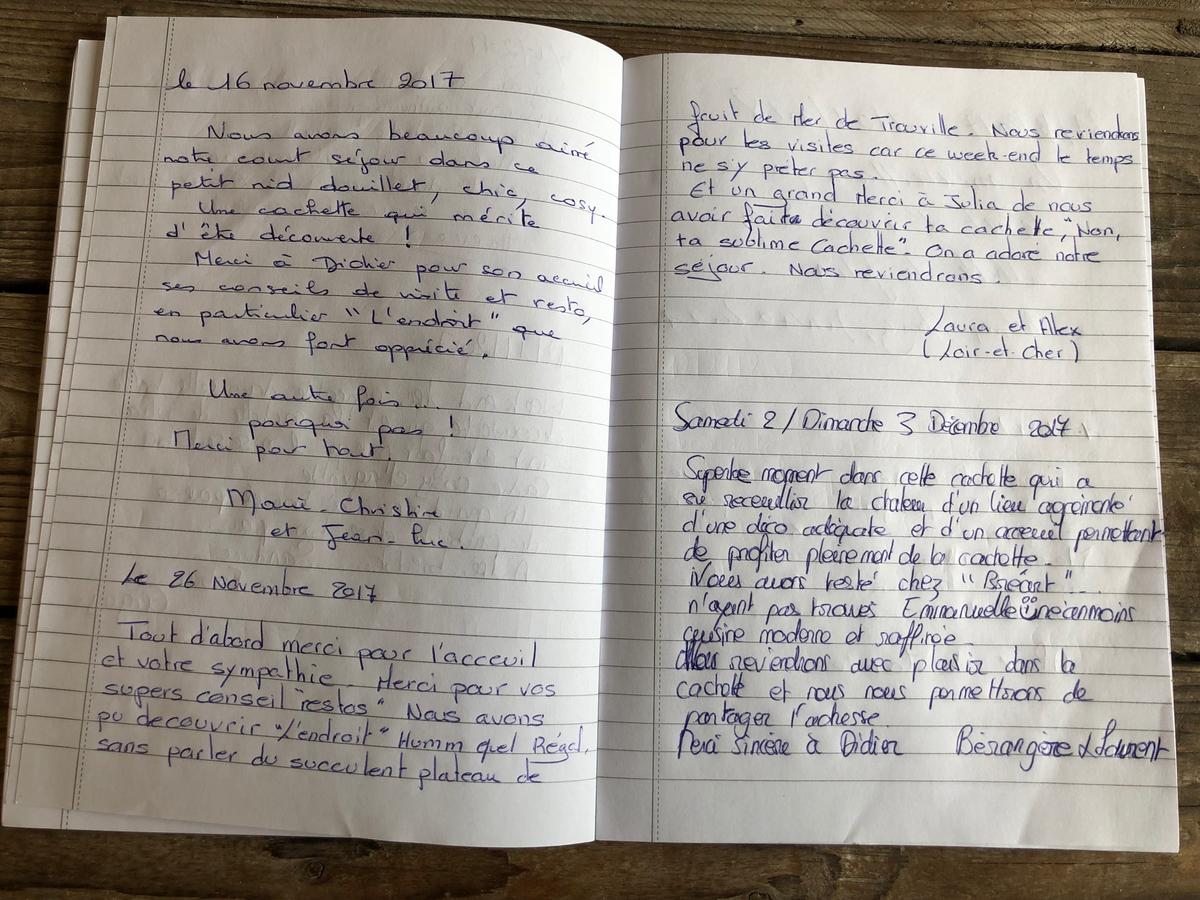 le 16 novembre 2017
Nous avons beaucoup aimé
notre court séjour dans ce
petit nid douillet, chic, cosy.
Une cachette qui mérite
d'être découverte !
Merci à Didier pour son accueil
ses conseils de visite et resto,
en particulier "L'endroit" que
nous avons fort apprécié.
Une autre fois...
pourquoi pas !
Merci pour tout.
Marie-Christine
et Jean-Luc.
Le 26 Novembre 2017
Tout d'abord merci pour l'acceuil
et votre sympathie. Merci pour vos
supers conseil "restos" Nous avons
pu decouvrir "L'endroit" Humm quel Régal,
sans parler du succulent plateau de
fruit de Mer de Trouville. Nous reviendrons
pour les visites car ce week-end le temps
ne s'y prêter pas.
Et un grand Merci à Julia de nous
avoir fait découvrir ta cachette, "Non,
ta sublime Cachette". On a adoré notre
séjour. Nous reviendrons.
Laura et Alex
(Loir-et-Cher)
Samedi 2 / Dimanche 3 Décembre 2017
Superbe moment dans cette cachotte qui a
su receuillir la chaleur d'un lieu agrémenté
d'une déco adéquate et d'un acceuil permettant
de profiter pleinement de la cachotte.
Nous avons testé chez "Bréart"...
n'ayant pas trouvés Emmanuelle néanmoins
cuisine moderne et raffinée.
Nous reviendrons avec plaisir dans la
cachotte et nous nous permettrons de
partager l'adresse.
Merci Sincère à Didier Bérangère & Laurent